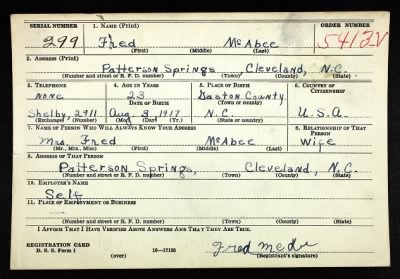 SERIAL NUMBER 1. NAME (Print) ORDER NUMBER
299 Fred McAbee 5413V
(First) (Middle) (Last)
2. ADDRESS (Print)
Patterson Springs Cleveland, N.C.
(Number and street or R. F. D. number) (Town) (County) (State)
3. TELEPHONE 4. AGE IN YEARS 5. PLACE OF BIRTH 6. COUNTRY OF CITIZENSHIP
none 23 Gaston County
DATE OF BIRTH (Town or county)
Shelby, 2911 Aug. 3, 1917 N.C. U.S.A.
(Exchange) (Number) (Mo.) (Day) (Yr.) (State or country)
7. NAME OF PERSON WHO WILL ALWAYS KNOW YOUR ADDRESS 8. RELATIONSHIP OF THAT PERSON
Mrs. Fred McAbee Wife
(Mr., Mrs., Miss) (First) (Middle) (Last)
9. ADDRESS OF THAT PERSON
Patterson Springs, Cleveland, N.C.
(Number and street or R. F. D. number) (Town) (County) (State)
10. EMPLOYER'S NAME
Self
11. PLACE OF EMPLOYMENT OR BUSINESS
(Number and street or R. F. D. number) (Town) (County) (State)
I AFFIRM THAT I HAVE VERIFIED ABOVE ANSWERS AND THAT THEY ARE TRUE.
REGISTRATION CARD
D. S. S. Form 1 (over) 16—17105 Fred
(Registrant's signature)